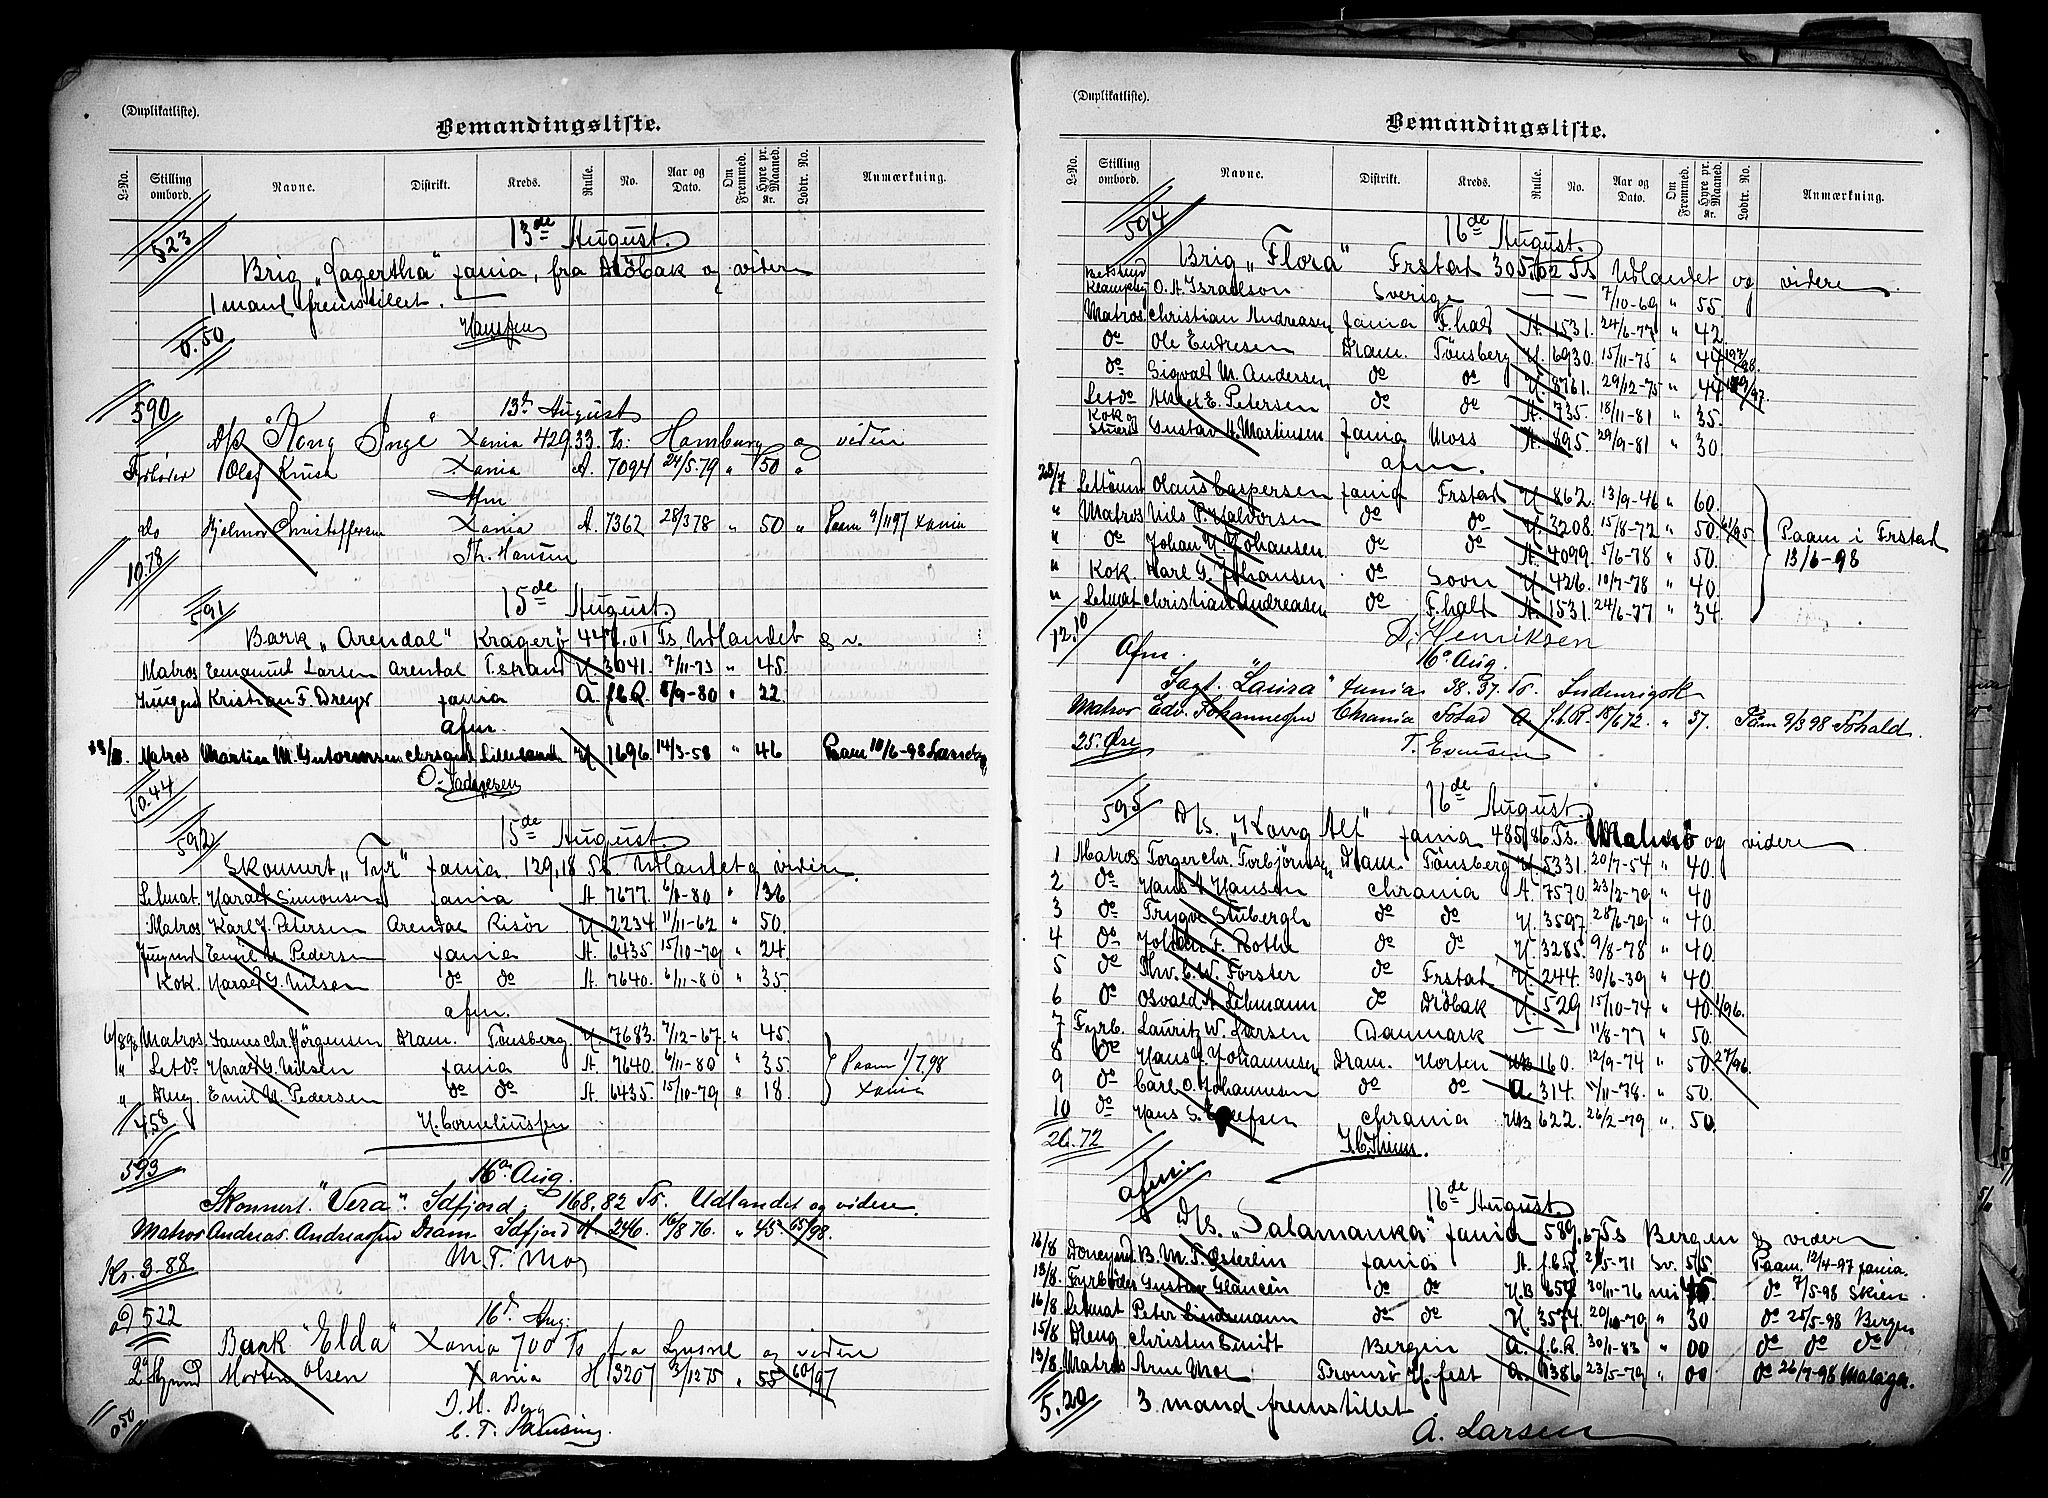 (Duplikatliste).
Bemandingsliste.
L-No. Stilling ombord. Navne. Distrikt. Kreds. Rulle. No. Aar og Dato. Om Fremmed. Hyre pr. Maaned. Kr. Lodtr. No. Anmærkning.
523 13de August.
Brig „Lagertha" fania, fra Dröbak og videre
1 mand fremstillet.
0.50 Hanssen
590 13de August
D/s "Kong Inge" Xania 429.33 Ts. Hamburg og videre
Fyrböder Olaf Knise Xania A. 7094 24/5-79 " 50 "
Afm
do Hjalmar Christoffersen Xania A. 7362 28/3 78 " 50 " Paam 9/11 97 Xania
10.78 Th. Hansen
591 15de August.
Bark „Arendal" Kragerö Ts. Udlandet o. v.
Matros Emanuel Larsen Arendal T.strand H. 3041. 7/11-75 " 45.
Jungmd Kristian F. Dreyer fania A. f.b.R. 5/9-80 " 22
afm.
Matros Martin M. Gutormsen Chrsand Lillesand H 1696 14/3-58 " 46 Paam 10/6-98
10.44
592 15de August.
Skonnert „Tyr" fania. 129,18 Ts. Udlandet og videre.
Letmat. Harald Simonsen fania A 7677. 6/8-80 " 36
Matros Karl J. Petersen Arendal Risör H 2234 11/11-62 " 50.
Jungmd Emil N. Pedersen fania A. 6435. 15/10-79 " 24.
Kok. Harald G. Nilsen do do A. 7640. 6/11-80 " 35.
afm.
6/8 98 Matros James Chr. Jörgensen Dram. Tönsberg H. 7683. 7/12-67 " 45.
" Let do Harald G. Nilsen fania A. 7640. 6/11-80 " 35. Paam 1/7 98
" Dreng. Emil N. Pedersen do do A. 6435. 15/10-79 " 18 Xania
4.58 H. Corneliussen
593 16de Aug.
Skonnert. "Vera". Idfjord, 168,82 Ts. Udlandet og videre.
Matros Andreas Andreassen Dram. Idfjord A. 246. 16/8 76. " 45. 65/98.
Kr. 3.88 M. T. Moe
522 16d Aug.
Bark "Elda" Xania 700 Ts fra Ljusne og videre
2den Styrmd Morten Olsen Xania H 3207 3/12 75 " 55 60/97
0.50 D. H. Berg
(Duplikatliste).
Bemandingsliste.
L-No. Stilling ombord. Navne. Distrikt. Kreds. Rulle. No. Aar og Dato. Om Fremmed. Hyre pr. Maaned. Kr. Lodtr. No. Anmærkning.
594 16de August.
Brig „Flora" Frstad 305,02 Ts Udlandet og videre
O. A. Israelson Sverige — — 7/10-69 " 55.
Matros Christian Andreasen fania F.hald A. 1531. 24/6-77 " 42.
do Ole Endresen Dram. Tönsberg H. 6930. 15/11-75 " 44
do Sigvald M. Andersen do do H. 8761. 29/12-75 " 44
Let do Aksel E. Petersen do do A. 735. 18/11-81 " 35.
Kok og Stuert Gustav A. Martinsen fania Moss A. 895. 29/9-81 " 30
afm.
Claus Caspersen fania Frstad H 862. 13/9-46 " 60.
" Matros Nils P. Halvorsen do do H. 3208 15/8-72 " 50. 61/95
" do Johan H. Johansen do do A. 4099 5/6-78 " 50. Paam i Frstad
" Kok. Karl G. Johansen do Soon H. 426. 10/7-78 " 40. 13/6-98
" Letmat Christian Andreasen do F.hald A. 1531 24/6-77 " 34
12.10 D. Henriksen
Afm. 16de Aug.
Jagt. "Laura" fania 38.37 Ts. Indenrigsk
Matros Edv. Johannessen Chrania Fstad A. f.b.R. 18/6 72. " 37. Paam 9/3 98 Fshald.
25. Öre T. Evensen
595 16de August.
D/s. „Kong Alf" fania 485,86 Ts. Malmö og videre
1 Matros Torger Chr. Torbjörnsen Dram. Tönsberg H. 5331. 20/7-54 " 40.
2 do Hans A. Hansen Chrania A. 7570. 23/2-79 " 40
3 do Trygve Stubergh do do H. 3597. 28/6-79 " 40.
4 do Johan F. Bothe do do H. 3285. 9/8-78 " 40.
5 do Thv. C. W. Forster do Frstad H. 244. 30/6-39 " 40.
6 do Osvald A. Lehmann do Dröbak H. 529 15/10-74 " 40. 1/96.
7 Fyrb. Lauritz W. Larsen Danmark — — 11/8-77 " 50.
8 do Hans J. Johannesen Dram. Horten HB 160. 12/9-74 " 50. 27/96.
9 do Carl O. Johannesen do do A. 314. 5/11-78. " 50.
10 do Hans S. Chrania HB 622. 26/2-79 " 50.
26.72 J. C. Thins.
afm. 16de August
D/s. „Salamanka" fania 589,67 Ts Bergen og videre
16/8 Donkeymd B. M. T. Österlin fania A. f.b.R. 21/5-71 Sv. 55 Paam. 12/4-97 fania.
13/8. Fyrböder Gustav Glancén do do H.B 652 30/11-76 nei do 7/5-98 Skien
16/8 Letmat Peter Lindemann do do H. 3574. 20/10-79 " 30 do 25/5-98 Bergen
15/8 Dreng Christen Smidt Bergen A. f.b.R. 30/1-83 " 00 do do do
13/8. Matros Arne Moe Tromsö H.fest A. 386 23/5-79 " 00 do 26/7-98 Malaga.
5.20 3 mand fremstillet
A. Larsen